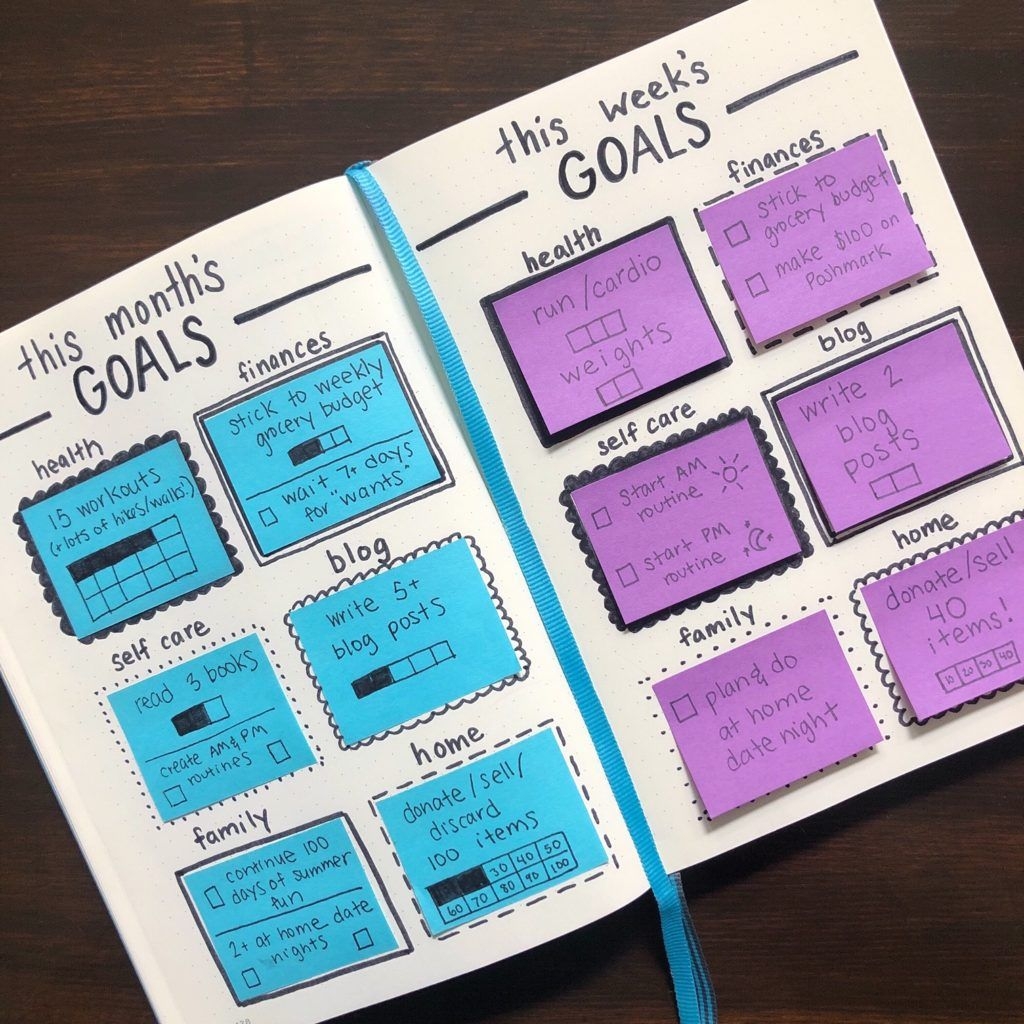 this month's
GOALS
health
15 workouts
(+ lots of hikes/walks!)
finances
stick to weekly
grocery budget
wait 7+ days
for "wants"
self care
read 3 books
create AM & PM
routines
blog
write 5+
blog posts
family
continue 100
days of summer
fun
2+ at home date
nights
home
donate/sell/
discard
100 items
30 40 50
60 70 80 90 100
this week's
GOALS
health
run/cardio
weights
finances
stick to
grocery budget
make $100 on
Poshmark
self care
start AM
routine
start PM
routine
blog
write 2
blog
posts
family
plan & do
at home
date night
home
donate/sell
40
items!
10 20 30 40